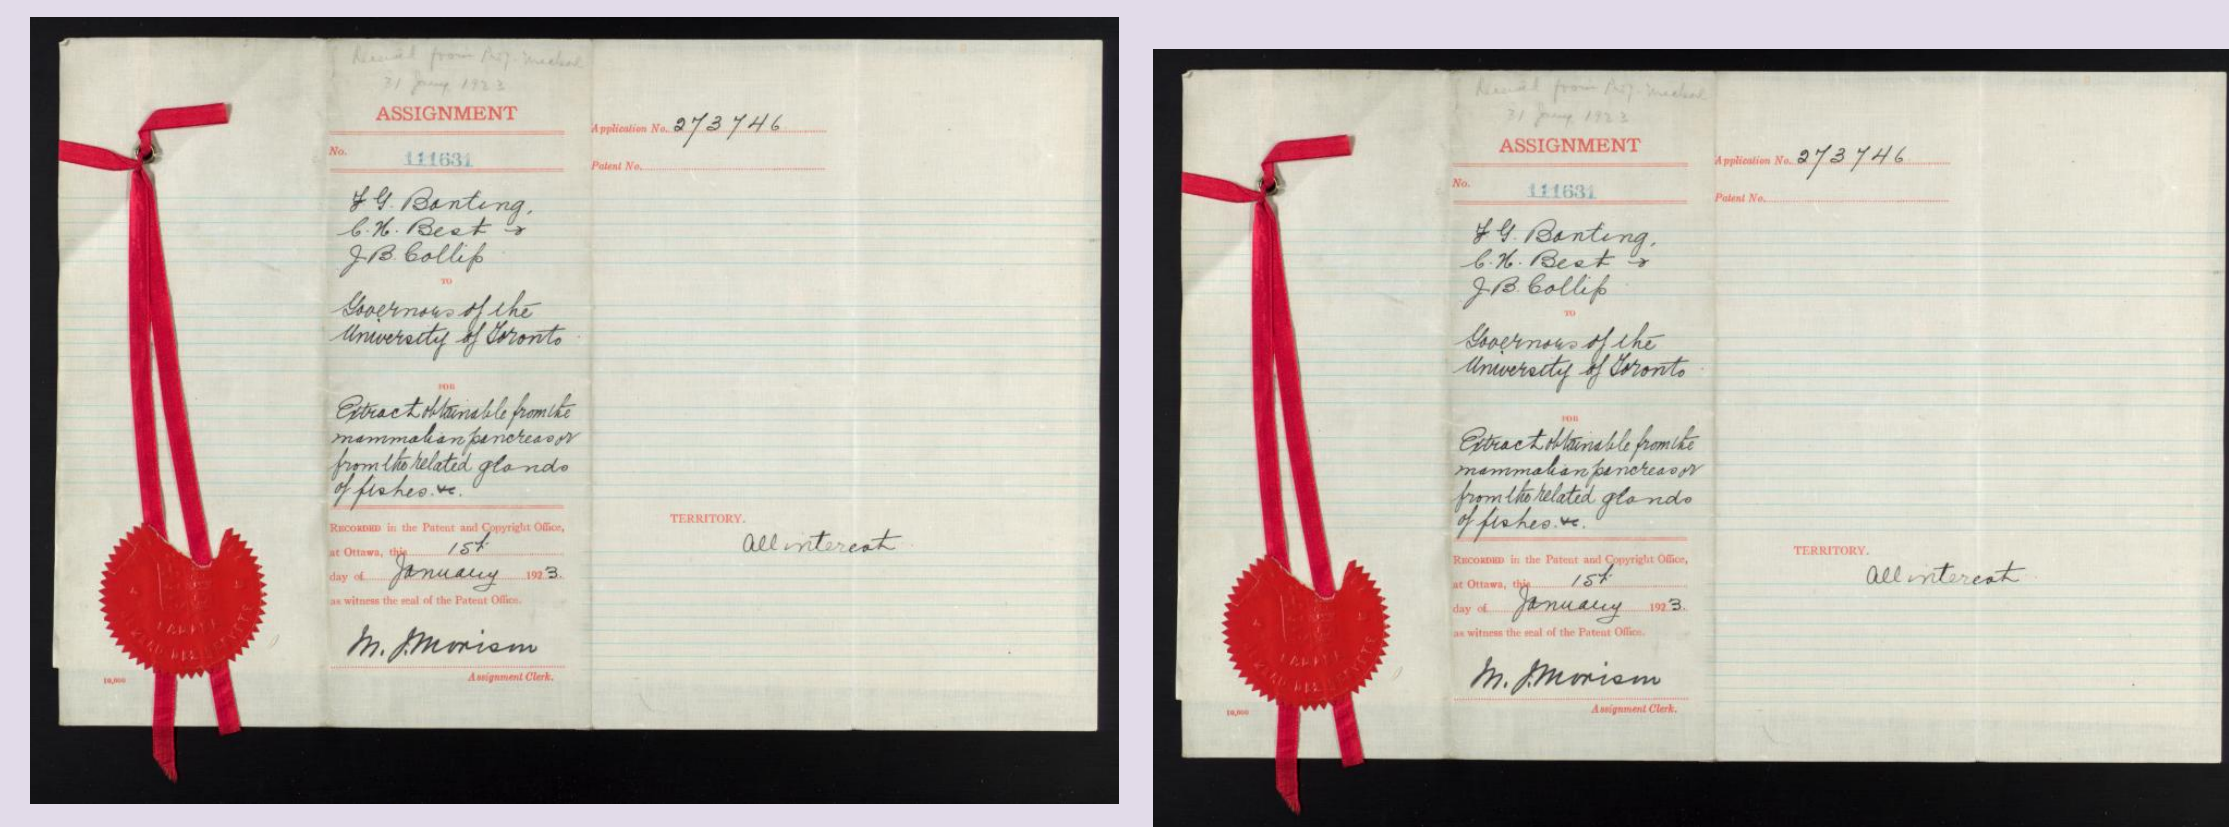 Received from Prof.
31 Jany. 1923
ASSIGNMENT
No. 111631
F G. Banting,
C. H. Best &
J. B. Collip
TO
Governors of the
University of Toronto
FOR
Extract obtainable from the
mammalian pancreas or
from the related glands
of fishes. &c.
RECORDED in the Patent and Copyright Office,
at Ottawa, this 1st
day of January 1923.
as witness the seal of the Patent Office.
M. J. Morison
Assignment Clerk.
10,000
Application No. 273746
Patent No.
TERRITORY.
All interest
Received from Prof.
31 Jany. 1923
ASSIGNMENT
No. 111631
F G. Banting,
C. H. Best &
J. B. Collip
TO
Governors of the
University of Toronto
FOR
Extract obtainable from the
mammalian pancreas or
from the related glands
of fishes. &c.
RECORDED in the Patent and Copyright Office,
at Ottawa, this 1st
day of January 1923.
as witness the seal of the Patent Office.
M. J. Morison
Assignment Clerk.
10,000
Application No. 273746
Patent No.
TERRITORY.
All interest